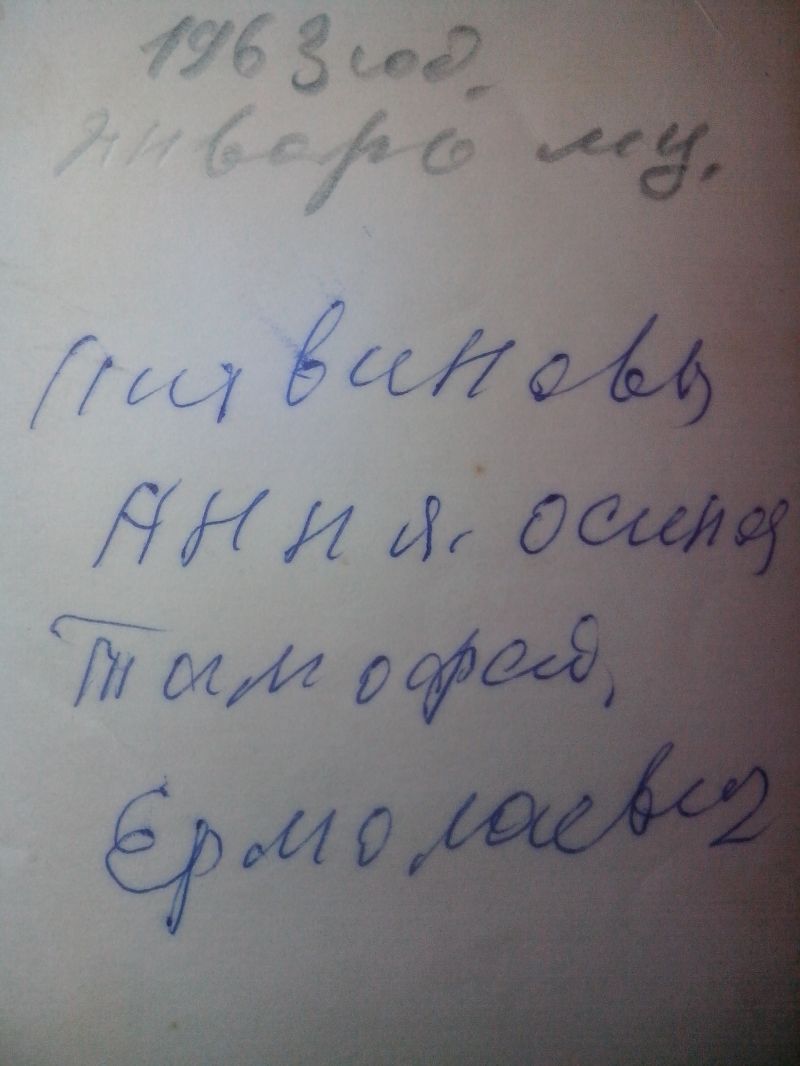 1963 год.
январь мц.
Литвиновы
Ання. осиная
Тимофей,
Ермолаевич